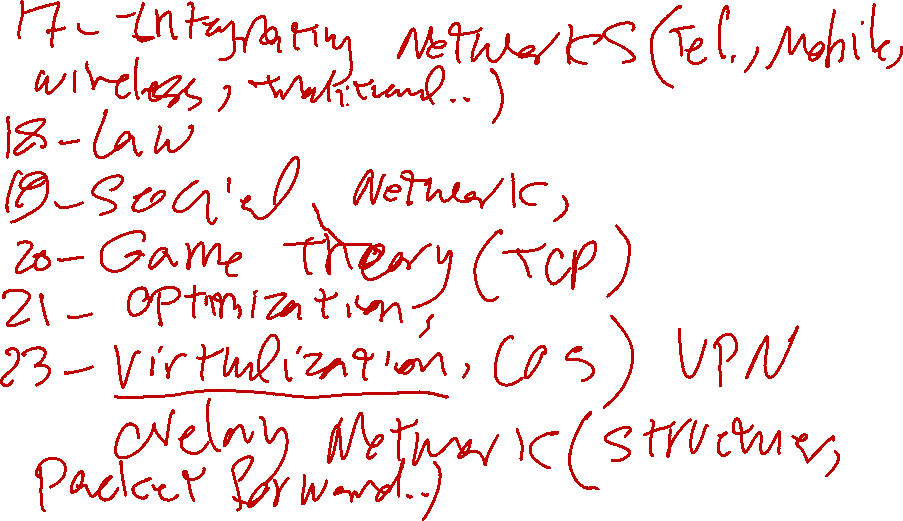 17- Integrating Networks (Tel., Mobile,
wireless, traditional..)
18- Law
19- Social Network,
20- Game Theory (TCP)
21- Optimization,
23- Virtulization, (OS) VPN
Overlay Network (structures,
Packet forward..)